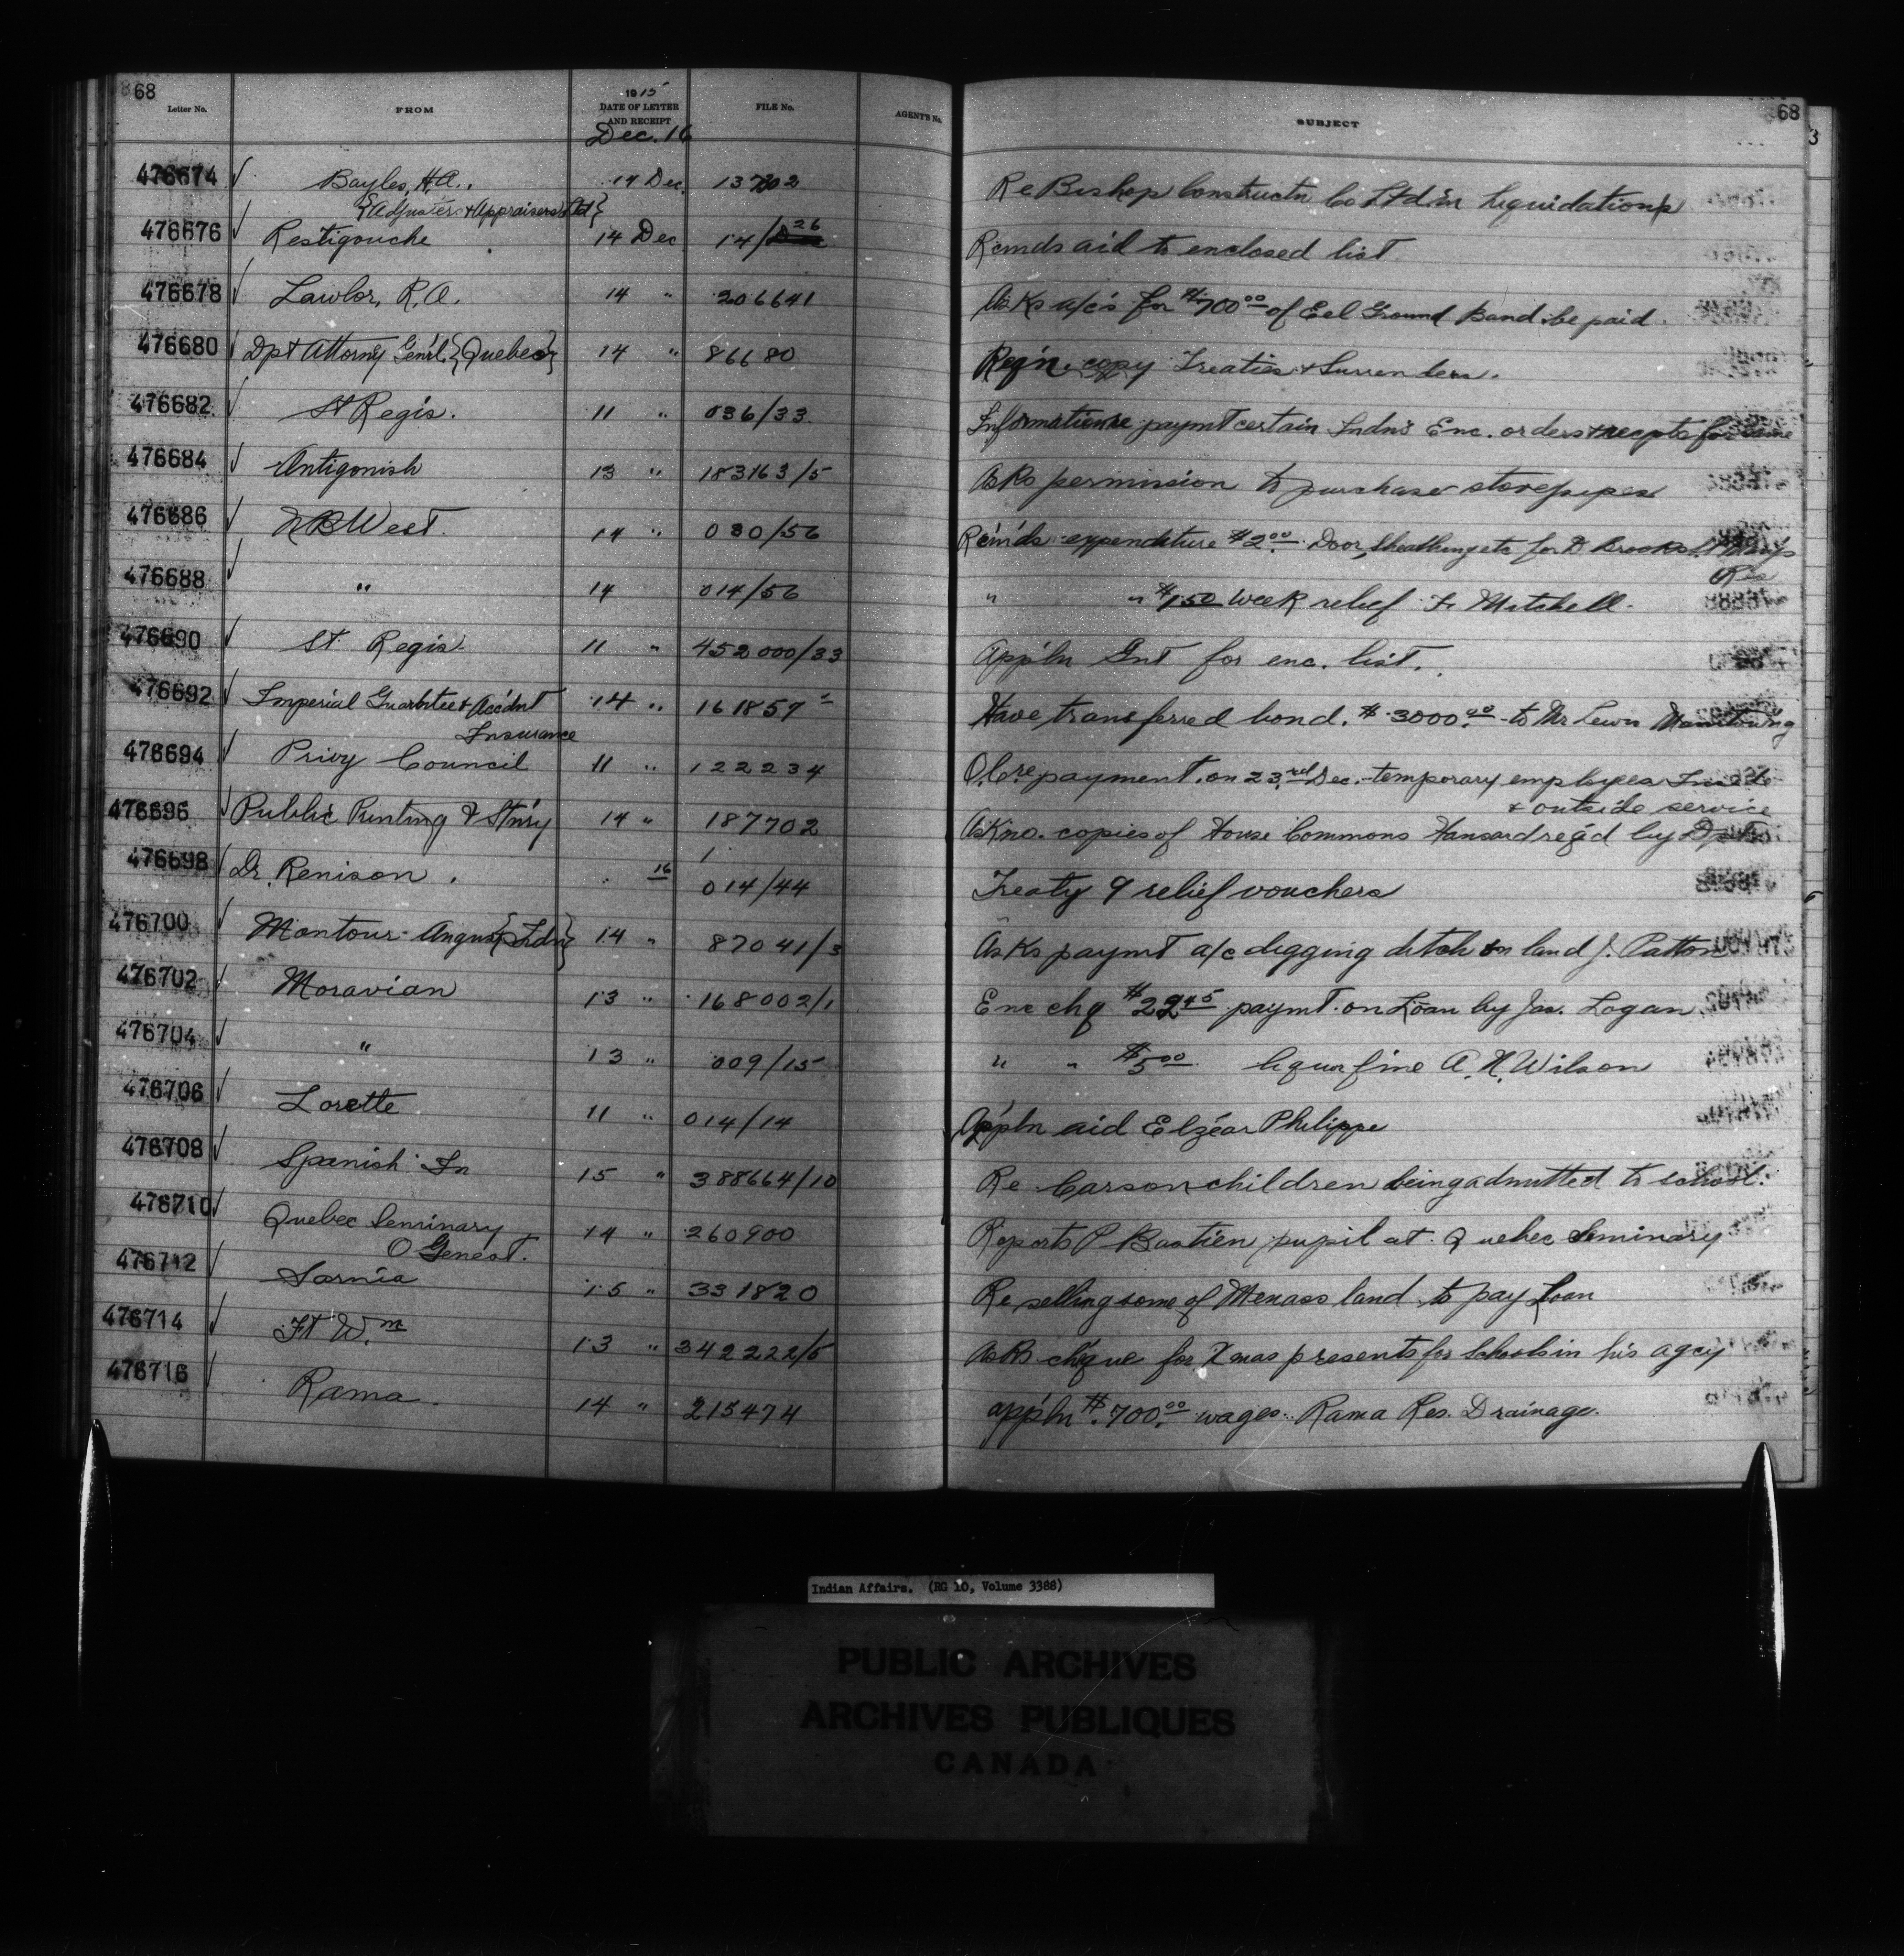 68 68
Letter No. FROM 1915 DATE OF LETTER AND RECEIPT FILE No. AGENT'S No. SUBJECT
Dec. 16
476674 Bayles, H.A., 14 Dec. Re Bishop Constructn Co Ltd in liquidation
{Adjuster & Appraisers Ltd}
476676 Restigouche 14 Dec 14/26 Rcmds aid to enclosed list
476678 Lawlor, R.A. 14 " 206641 Asks a/c's for $700.00 of Eel Ground Band be paid.
476680 Dpt Attorny Gen'l. {Quebec} 14 " 86680 Reqn. copy Treaties & Surrenders.
476682 St Regis. 11 " 036/33 Information re paymt certain Indns Enc. orders & recepts for same
476684 Antigonish 13 " 183163/5 Asks permission to purchase stovepipes
476686 N B West. 14 " 030/56 Rcm'ds expenditure $2.00 Door, sheathing etc for D Brooks St Marys Res
476688 " 14 014/56 " " $1.50 week relief F. Mitchell.
476690 St. Regis. 11 " 452000/33 App'ln Gnt for enc. list.
476692 Imperial Guarntee & Accidnt 14 " 161857 Have transferred bond. $3000.00 to Mr Lewis Manitowing
Insurance
476694 Privy Council 11 " 122234 O.C. re payment on 23rd Dec. temporary employees Inside
& outside service
476696 Public Printing & St'nry 14 " 187702 Ask no. copies of House Commons Hansard req'd by Dpt
476698 Dr. Renison. 16 014/44 Treaty 9 relief vouchers
476700 Montour Angus {Indn} 14 " 87041/3 Asks paymt a/c digging ditch on land J. Patton
476702 Moravian 13 " 168002/1 Enc chq $22.45 paymt. on Loan by Jas. Logan
476704 " 13 " 009/15 " " $5.00 liquor fine A.N. Wilson
476706 Lorette 11 " 014/14 App'ln aid Elzéar Philippe
476708 Spanish In 15 " 388664/10 Re Carson children being admitted to school.
476710 Quebec Seminary 14 " 260900 Reports P Bastien pupil at Quebec Seminary
O Genest.
476712 Sarnia 15 " 331820 Re selling some of Menass land to pay Loan
476714 Ft Wm 13 " 342222/5 Asks chque for Xmas presents for Schools in his agcy
476716 Rama. 14 " 215474 app'ln $700.00 wages. Rama Res. Drainage.
Indian Affairs. (RG 10, Volume 3388)
PUBLIC ARCHIVES
ARCHIVES PUBLIQUES
CANADA